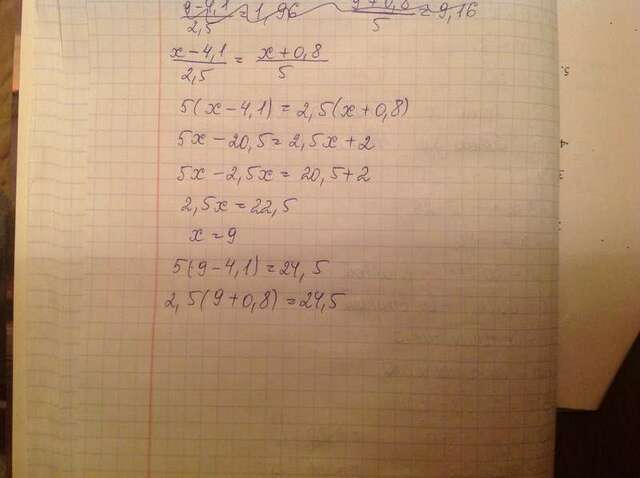 (9-4,1)/2,5 = 1,96 (9+0,8)/5 = 9,16
(x-4,1)/2,5 = (x+0,8)/5
5(x-4,1) = 2,5(x+0,8)
5x-20,5 = 2,5x+2
5x-2,5x = 20,5+2
2,5x = 22,5
x = 9
5(9-4,1) = 24,5
2,5(9+0,8) = 24,5
5.
4.